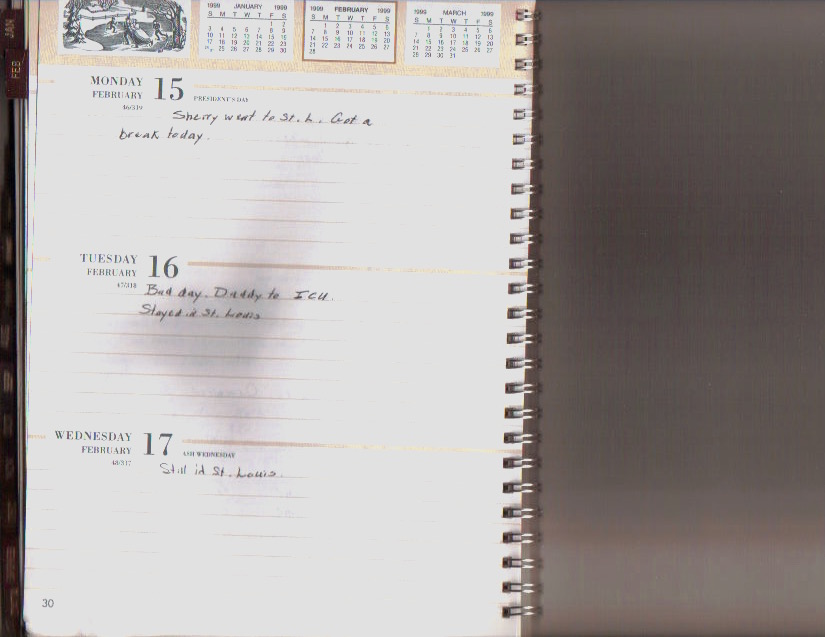 JAN
FEB
1999 JANUARY 1999
S M T W T F S
1 2
3 4 5 6 7 8 9
10 11 12 13 14 15 16
17 18 19 20 21 22 23
25 26 27 28 29 30
1999 FEBRUARY 1999
S M T W T F S
1 2 3 4 5 6
7 8 9 10 11 12 13
14 15 16 17 18 19 20
21 22 23 24 25 26 27
28
1999 MARCH 1999
S M T W T F S
1 2 3 4 5 6
7 8 9 10 11 12 13
14 15 16 17 18 19 20
21 22 23 24 25 26 27
28 29 30 31
MONDAY 15
FEBRUARY
PRESIDENT'S DAY
46/319
Sherry went to St. L. Got a
break today.
TUESDAY 16
FEBRUARY
47/318
Bad day. Daddy to ICU.
Stayed in St. Louis
WEDNESDAY 17
FEBRUARY
ASH WEDNESDAY
48/317
Still in St. Louis.
30